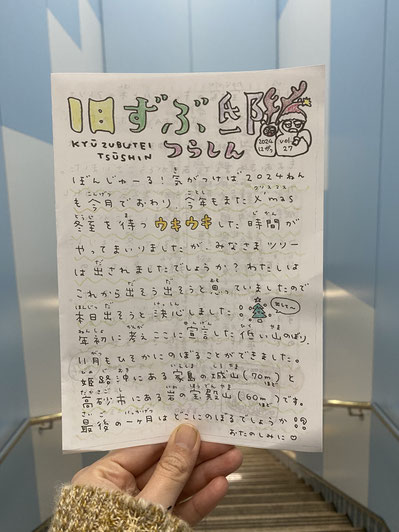 旧ずぶ邸
KYŪZUBUTEI
TSŪSHIN
つうしん
2024
12がつ
vol.
27
ぼんじゅーる！気がつけば2024ねん
も今月でおわり、今年もまたXmas
冬至を待つウキウキした時間が
やってまいりましたが、みなさまツリー
は出されましたでしょうか？わたしは
これから出そう出そうと思っていましたので
本日出そうと決心しました！
年初に考えここに宣言した低い山のぼり、
11月もひそかにのぼることができました。
姫路沖にある家島の城山(70mほど)と
高砂市にある岩の宝殿山(60mほど)です。
最後の一ヶ月はどこにのぼるでしょうか！？
おたのしみに♡